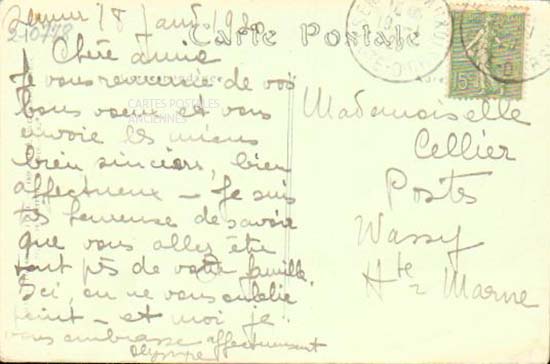 18 janv 19
210778
Carte Postale
Chère amie
Je vous remercie de vos
bons voeux et vous
envoie les miens
bien sincères, bien
affectueux - Je suis
très heureuse de savoir
que vous allez être
tout près de votre famille.
Ici, on ne vous oublie
point - et moi je
vous embrasse affectueusement
CARTES POSTALES
ANCIENNES
Mademoiselle
Cellier
Postes
Wassy
Hte Marne